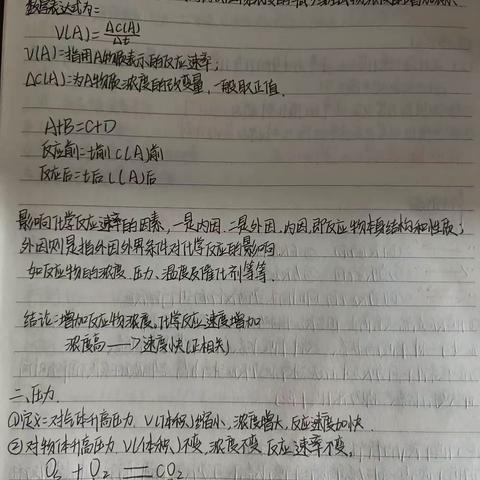 数学表达式为=
V(A)=ΔC(A)/Δt
V(A)=指用A物质表示的反应速率;
ΔC(A)=为A物质浓度的改变量,一般取正值.
A+B=C+D
反应前=t前 C(A)前
反应后=t后 C(A)后
影响化学反应速率的因素,一是内因.二是外因.内因.即反应物本身结构和性质;
外因则是指外因外界条件对化学反应的影响.
如反应物的浓度、压力、温度及催化剂等等.
结论=增加反应物浓度,化学反应速度增加
浓度高——>速度快(正相关)
二.压力.
①定义=对气体升高压力 V(体积)缩小,浓度增大,反应速度加快.
②对物体升高压力 V(体积)不变,浓度不变 反应速率不变.
+ O₂ == CO₂